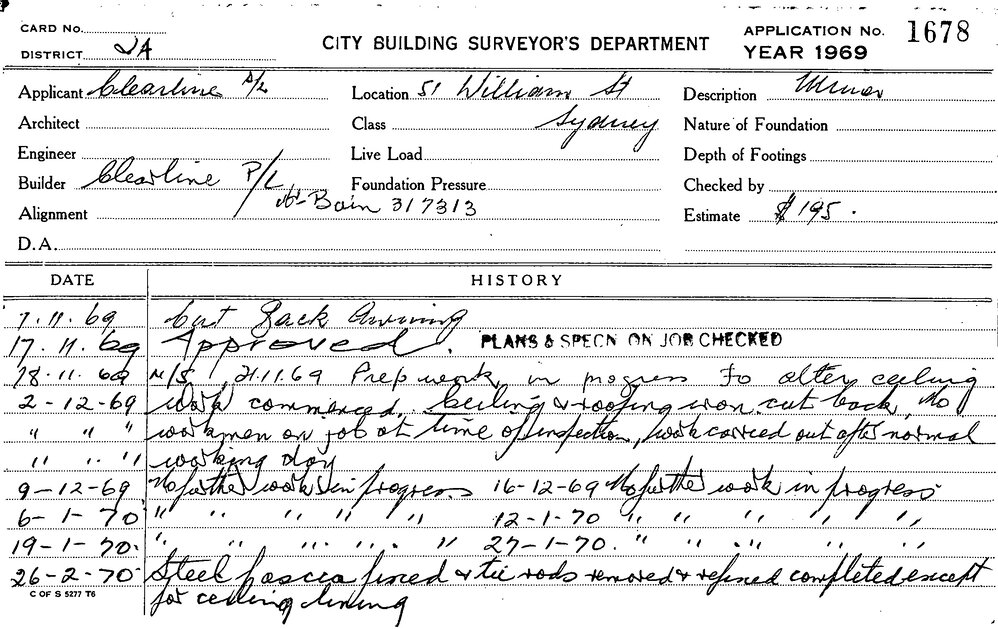 CARD No.
DISTRICT 2A
CITY BUILDING SURVEYOR'S DEPARTMENT
APPLICATION No. 1678
YEAR 1969
Applicant Clearline P/L
Location 51 William St
Sydney
Description Minor
Architect
Class
Nature of Foundation
Engineer
Live Load
Depth of Footings
Builder Clearline P/L
Foundation Pressure
Checked by
Mr Bain 317313
Alignment
Estimate $195.
D.A.
DATE HISTORY
7.11.69 Cut Back Awning
17.11.69 Approved. PLANS & SPECN ON JOB CHECKED
18.11.69 N/S 21.11.69 Prep work in progress to alter ceiling
2-12-69 Work commenced. Ceiling & roofing iron cut back, No
" " " workmen on job at time of inspection, work carried out after normal
" " " working day
9-12-69 No further work in progress 16-12-69 No further work in progress
6-1-70 " " " " " 12-1-70 " " " " "
19-1-70. " " " " " 27-1-70. " " " " "
26-2-70 Steel fascia fixed & tie rods removed & refixed completed except
for ceiling lining
C OF S 5277 T6